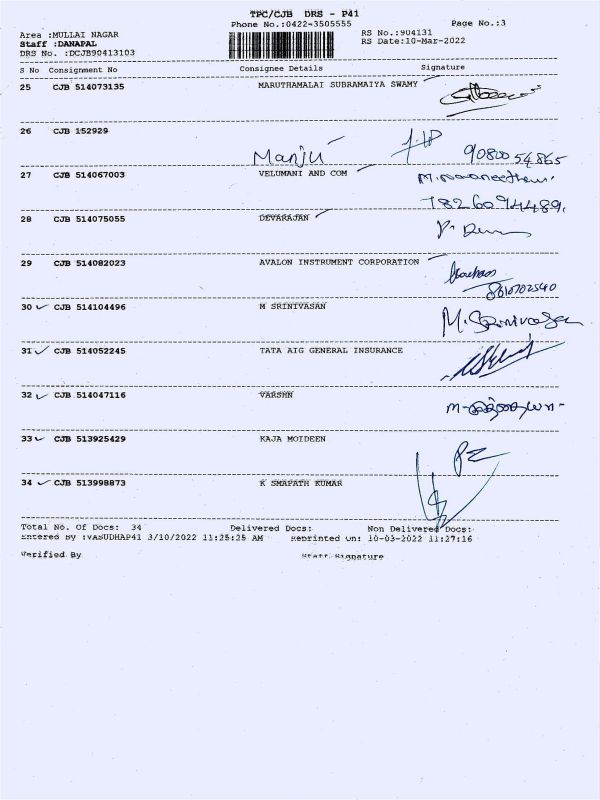 TPC/CJB DRS - P41
Phone No.:0422-3505555
Page No.:3
Area :MULLAI NAGAR
RS No.:904131
Staff :DANAPAL
RS Date:10-Mar-2022
DRS No. :DCJB90413103
S No Consignment No Consignee Details Signature
25 CJB 514073135 MARUTHAMALAI SUBRAMAIYA SWAMY
26 CJB 152929
Manju 9080054865
27 CJB 514067003 VELUMANI AND COM
7826094489.
28 CJB 514075055 DEVARAJAN
29 CJB 514082023 AVALON INSTRUMENT CORPORATION
8610702540
30 CJB 514104496 M SRINIVASAN M.Srinivasan
31 CJB 514052245 TATA AIG GENERAL INSURANCE
32 CJB 514047116 VARSHN
33 CJB 513925429 KAJA MOIDEEN
34 CJB 513998873 K SMAPATH KUMAR
Total No. Of Docs: 34 Delivered Docs: Non Delivered Docs:
Entered By :VASUDHAP41 3/10/2022 11:25:25 AM Reprinted On: 10-03-2022 11:27:16
Verified By Staff Signature